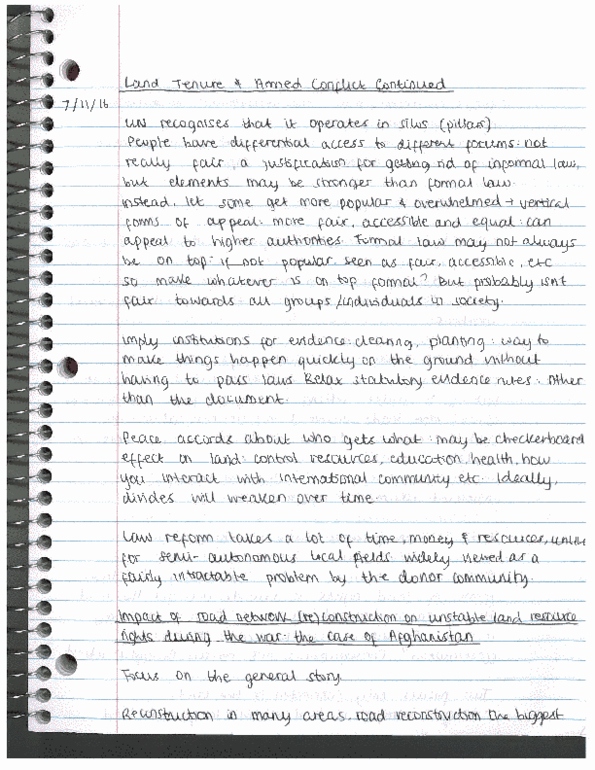 Land Tenure & Armed Conflict Continued
7/11/16
UN recognises that it operates in silus (pillars)
People have differential access to different forums: not
really fair, a justification for getting rid of informal law,
but elements may be stronger than formal law.
Instead, let some get more popular & overwhelmed → vertical
forms of appeal: more fair, accessible and equal: can
appeal to higher authorities. Formal law may not always
be on top: if not popular, seen as fair, accessible, etc
so make whatever is on top formal? But probably isn't
fair towards all groups/individuals in society.
Imply institutions for evidence: clearing, planting: way to
make things happen quickly on the ground without
having to pass laws. Relax statutory evidence rules: other
than the document.
Peace accords about who gets what: may be checkerboard
effect on land: control resources, education, health, how
you interact with international community etc. Ideally,
divides will weaken over time.
Law reform takes a lot of time, money & resources,
for semi-autonomous local fields widely viewed as a
fairly intractable problem by the donor community.
Impact of road network (re)construction on unstable land resource
rights during the war: the case of Afghanistan
Focus on the general story
Reconstruction in many areas, road reconstruction the biggest